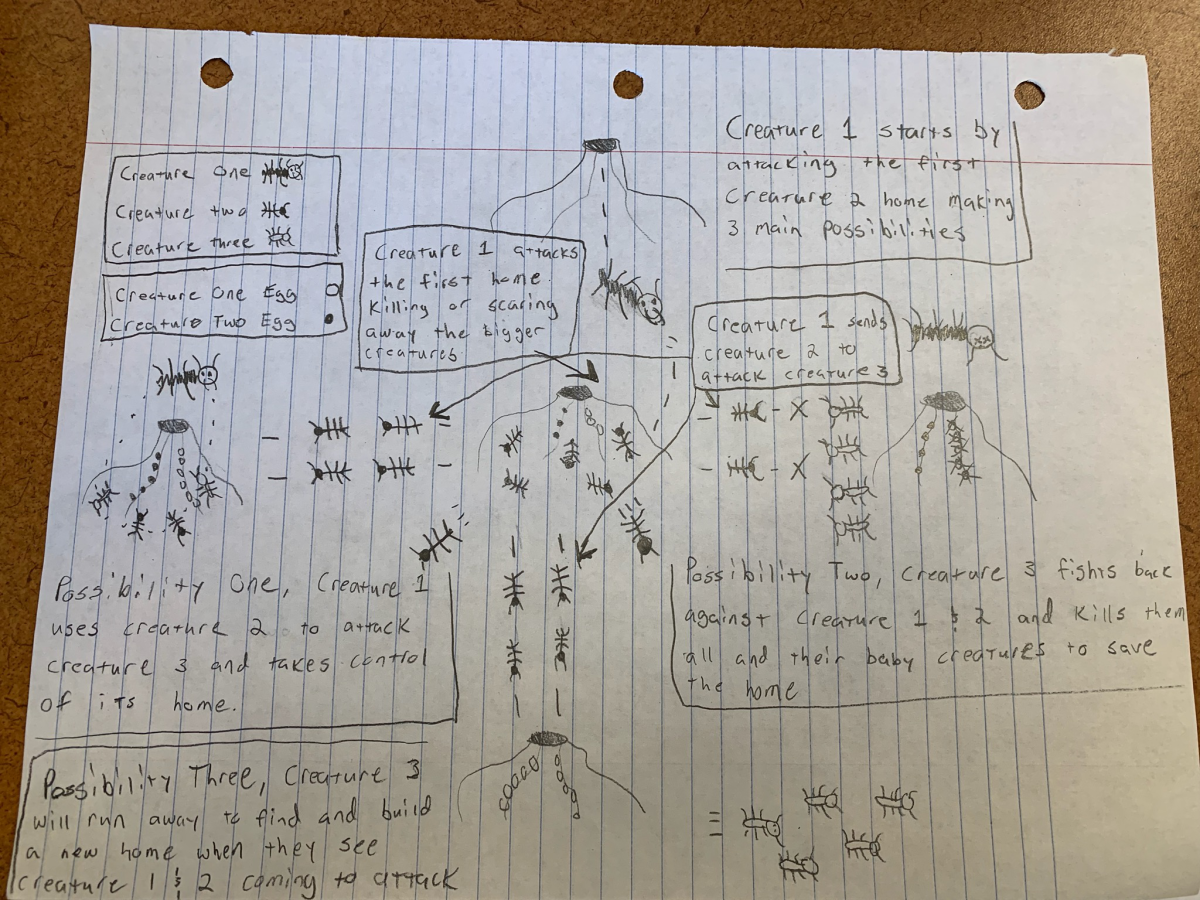 Creature 1 starts by
attacking the first
Creature 2 home making
3 main possibilities
Creature One
Creature two
Creature three
Creature One Egg
Creature Two Egg
Creature 1 attacks
the first home.
Killing or scaring
away the bigger
creatures
Creature 1 sends
creature 2 to
attack creature 3
Possibility One, Creature 1
uses creature 2 to attack
creature 3 and takes control
of its home.
Possibility Two, Creature 3 fights back
against creature 1 & 2 and kills them
all and their baby creatures to save
the home
Possibility Three, Creature 3
will run away to find and build
a new home when they see
creature 1 & 2 coming to attack